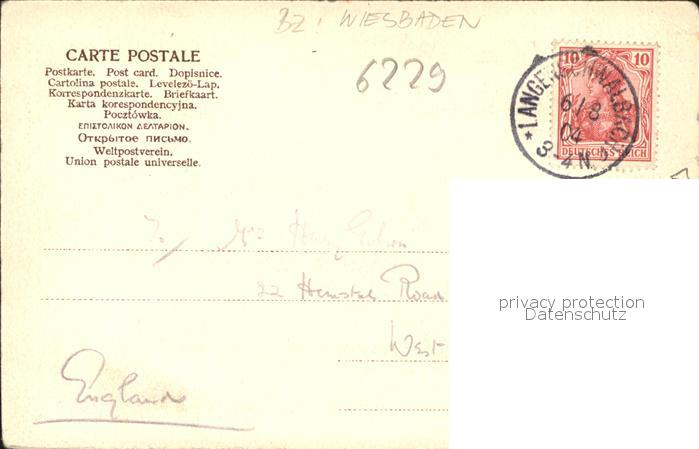 BZ: WIESBADEN
6229
CARTE POSTALE
Postkarte. Post card. Dopisnice.
Cartolina postale. Levelező-Lap.
Korrespondenzkarte. Briefkaart.
Karta korespondencyjna.
Pocztówka.
ΕΠΙΣΤΟΛΙΚΟΝ ΔΕΛΤΑΡΙΟΝ.
Открытое письмо.
Weltpostverein.
Union postale universelle.
10 10
DEUTSCHES REICH
* LANGENSCHWALBACH
6/8
04
3-4 N.
To Mr
22 Road
West
England
privacy protection
Datenschutz